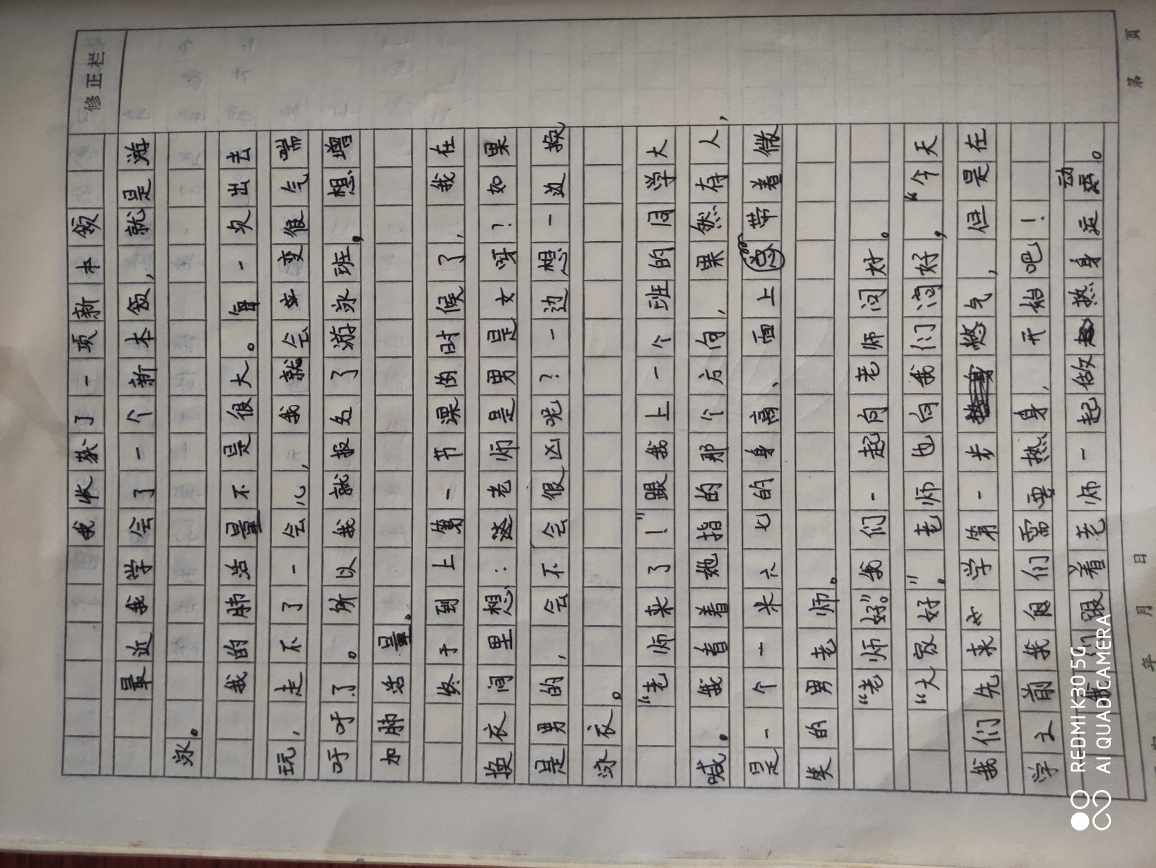 修正栏
我收获了一项新本领
最近我学会了一个新本领，就是游
泳。
我的肺活量不是很大。每一次出去
玩，走不了一会儿，我就会变很气喘
吁吁了。所以我就报名了游泳班，想增
加肺活量。
终于到上第一节课的时候了，我在
换衣间里想：这老师是男是女呀？如果
是男的，会不会很凶呢？一边想一边换
泳衣。
“老师来了！”跟我上一个班的同学大
喊。我看着她指的那个方向，果然有人，
是一个一米六七的身高、面上带着微
笑的男老师。
“老师好。”我们一起向老师问好。
“大家好”。老师也向我们问好，“今天
我们先来学第一步憋气，但是在
学之前我们需要热身，开始吧！
我们跟着老师一起做热身运动。
第 页
年 月 日
REDMI K30 5G
AI QUAD CAMERA